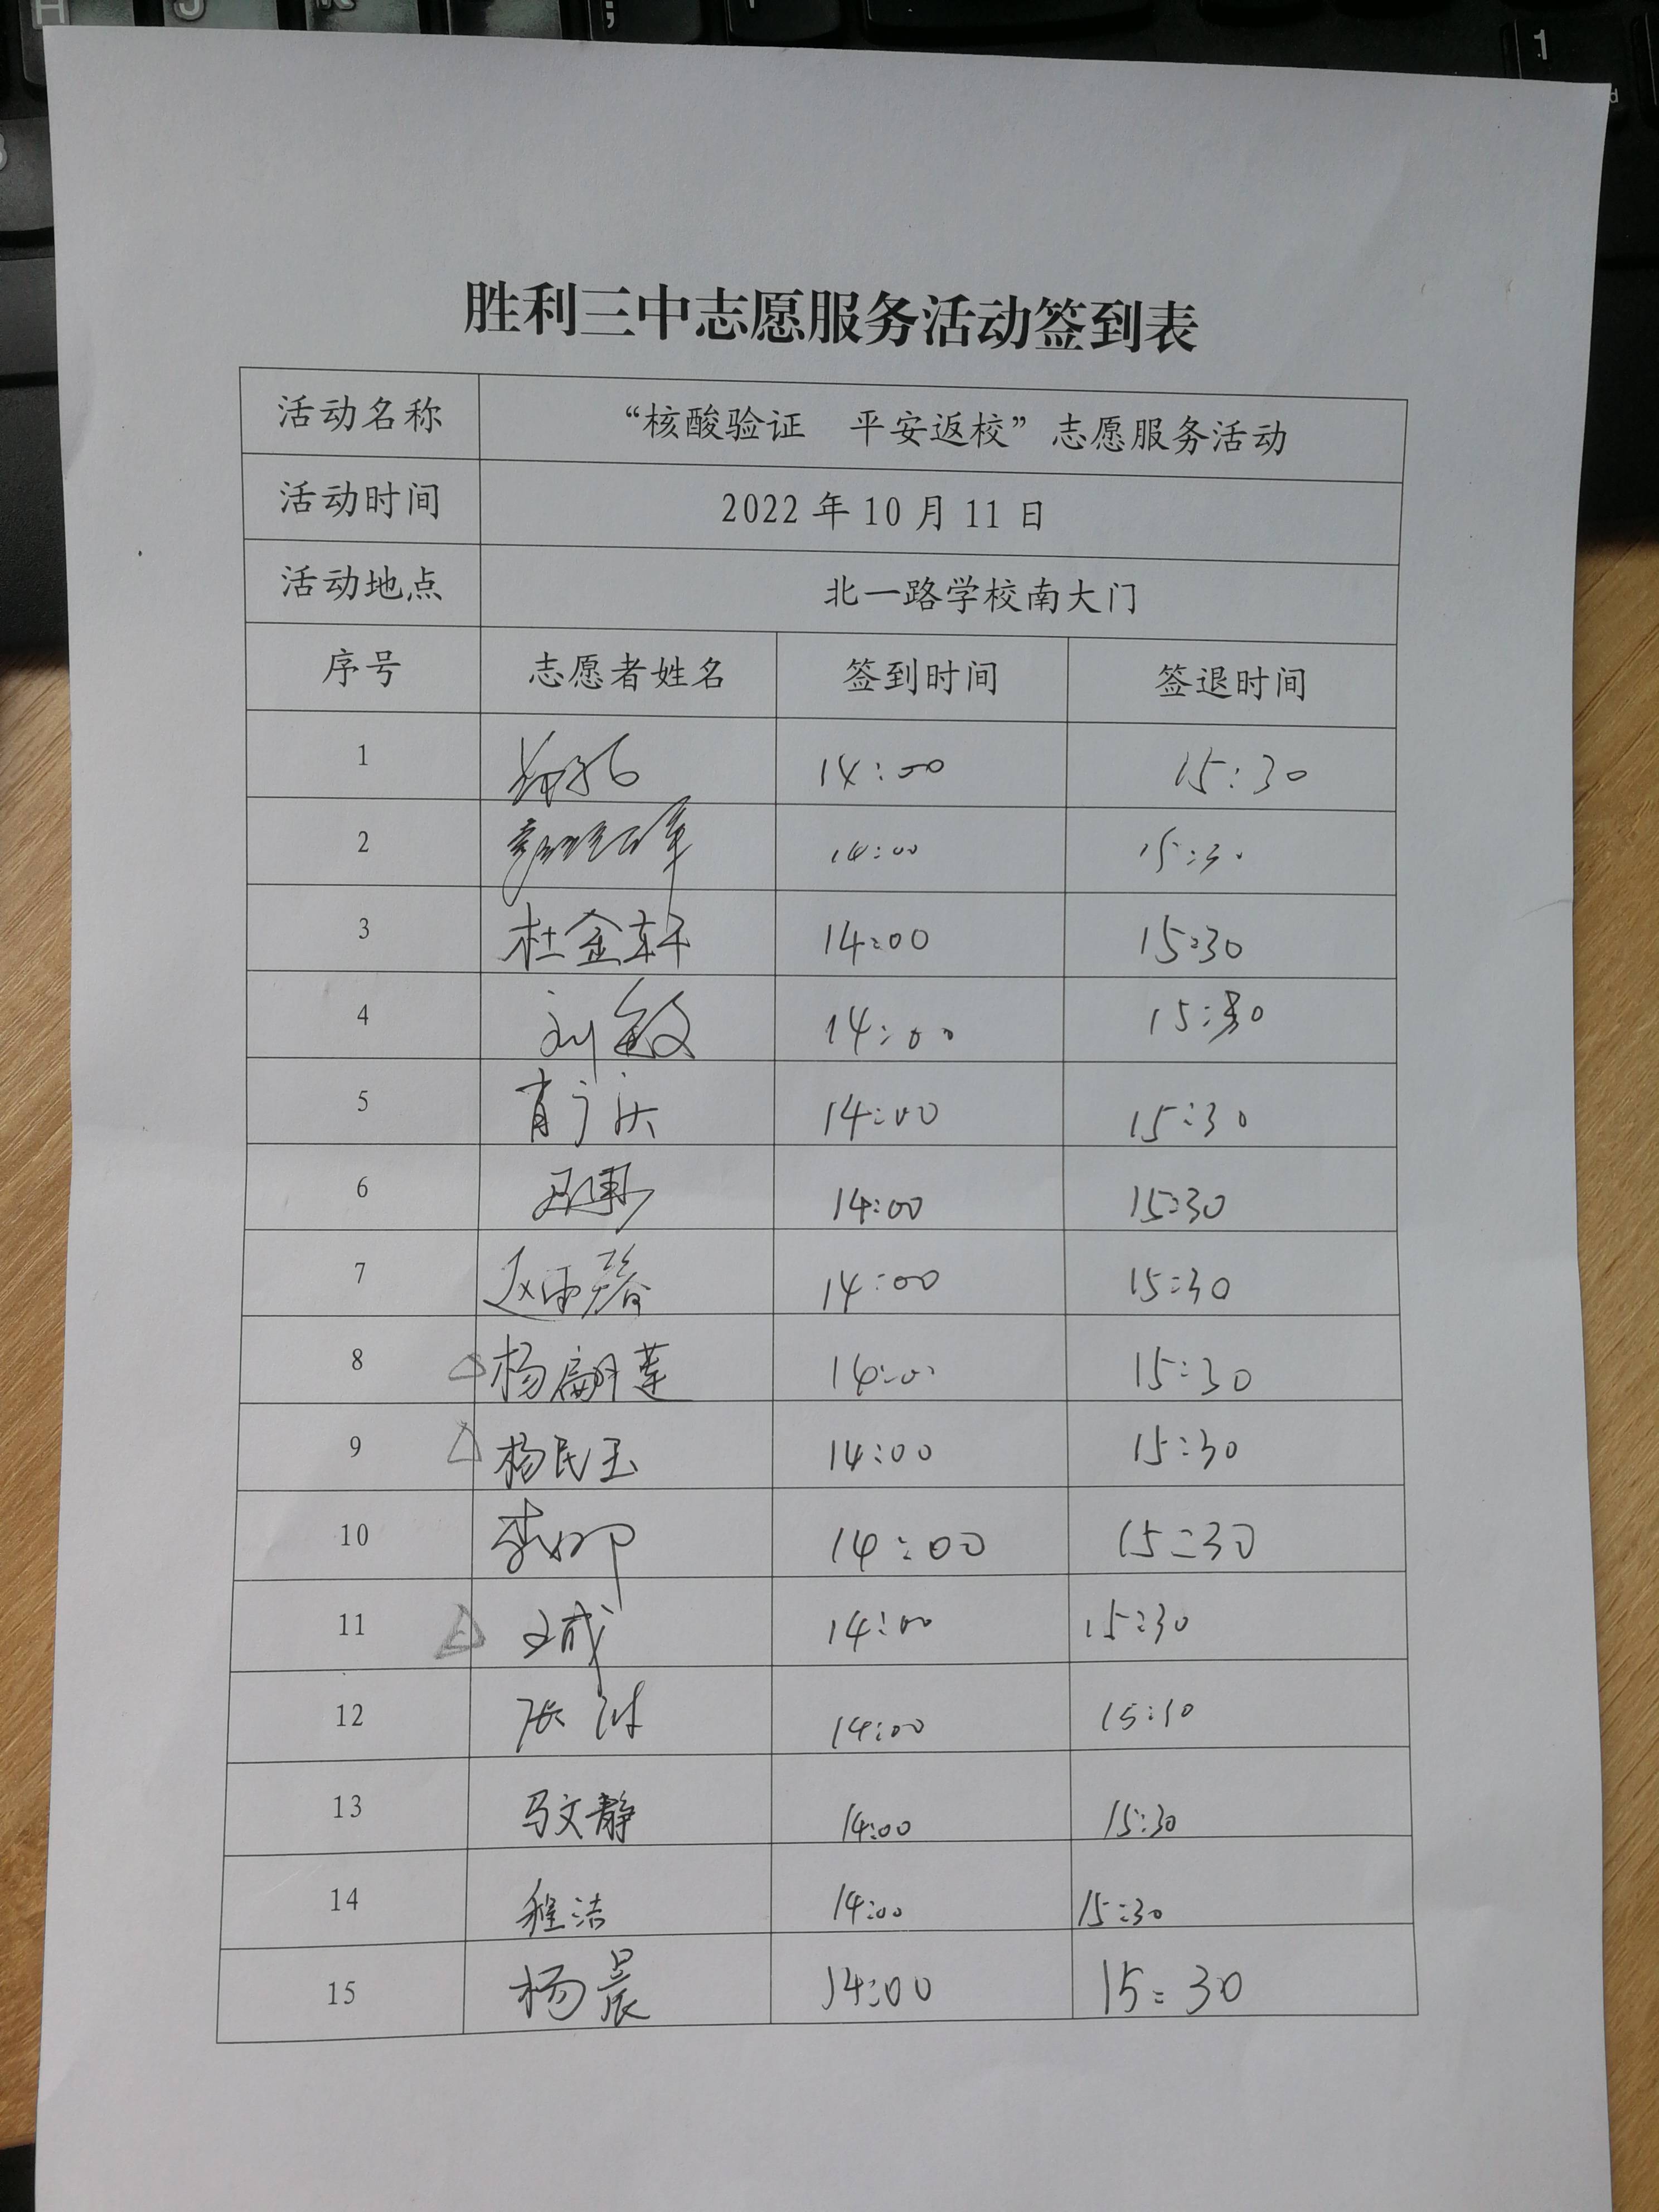 胜利三中志愿服务活动签到表
活动名称 “核酸验证 平安返校”志愿服务活动
活动时间 2022年10月11日
活动地点 北一路学校南大门
序号 志愿者姓名 签到时间 签退时间
1 14:00 15:30
2 14:00 15:30
3 杜金轩 14:00 15:30
4 刘敏 14:00 15:30
5 14:00 15:30
6 14:00 15:30
7 赵雨馨 14:00 15:30
8 杨翩莲 14:00 15:30
9 杨民玉 14:00 15:30
10 李娜 14:00 15:30
11 14:00 15:30
12 14:00 15:30
13 马文静 14:00 15:30
14 程洁 14:00 15:30
15 杨晨 14:00 15:30